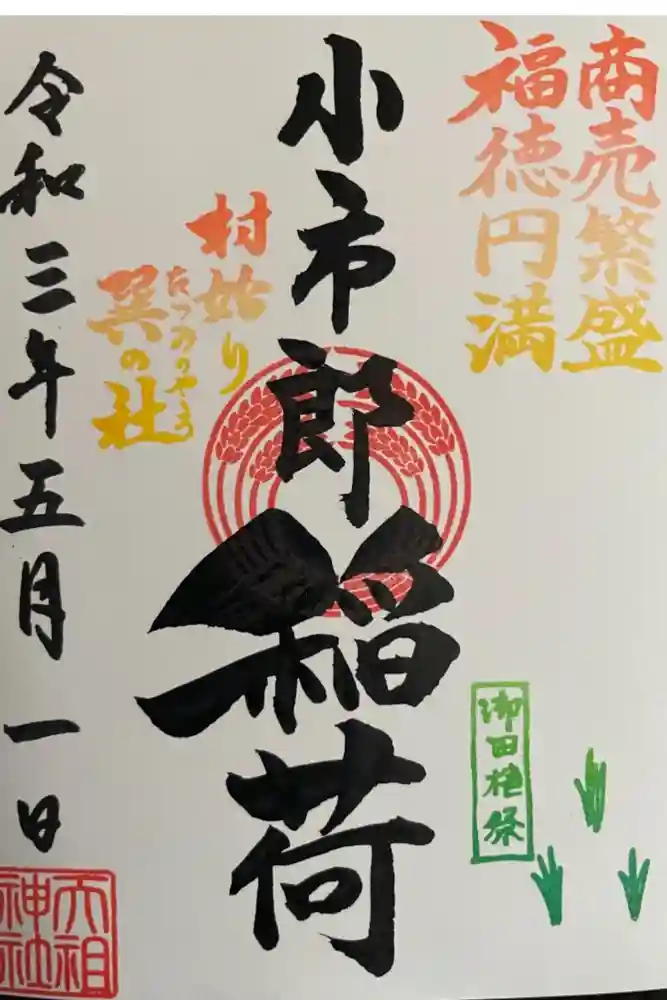 商売繁盛
福徳円満
小市郎稲荷
村始り
巽の社
たつみのやしろ
令和三年五月一日
御田植祭
大祖
神社